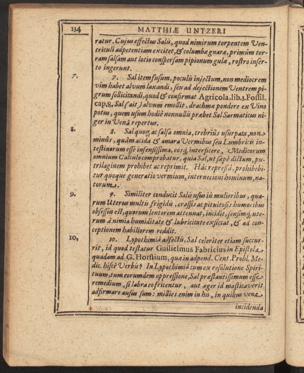 134 MATTHIÆ UNTZERI
ratur. Cujus effectus Salis, quod nimirum torpentem Ven-
triculi appetentiam excitet, & columba gnara, primùm ter-
ram salsam aut lutio conspersam pipionum gulæ, rostro inser-
to ingerunt.
7. 7. Sal item fusum, poculis injectum, non mediocrem
vim habet alvum laxandi, seu ad dejectionem Ventrem pi-
grum sollicitandi, quod & confirmat Agricola, lib. 3. Fossil.
cap. 8. Sal (ait) alvum emollit, drachma pondere ex Vino
potus, quem usum hodie nonnulli probat Sal Sarmaticus ni-
ger in Venâ repertus.
8. 8. Sal quoque, at salsa omnia, crebriùs usurpata, non
quàm acida & amara Vermibus seu Lumbricis in-
testinorum esse infensissima, eosque interficere, Medicorum
omnium Calculo comprobatur, quia Sal, ut sæpè dictum, pu-
trilaginem prohibet ac reprimit. Hac repressâ, prohibebi-
tur quoque generatio vermium, interneciónī hominum, na-
torum.
9. 9. Similiter conducit Salis usus in mulieribus, qua-
rum Uterus multis frigidis, crassis ac pituitosis humoribus
obsessus est, quorum lentorem attenuat, incidit, sensimque ute-
rum à nimia humiditate & lubricitate exsiccat, & ad con-
ceptionem habiliorem reddit.
10. 10. Lypothimiâ affectis, Sal celeriter etiam succur-
rit, id quod testatur Guilielmus Fabricius in Epistola
quadam ad G. Horstium, quæ in append. Cent. Probl. Me-
dic. hisce Verbis: In Lypothimiâ tum ex resolutione Spiri-
tuum, tum eorundem oppressione, Sal præstantissimum esse
remedium, si labra eo fricentur, aut æger id masticaverit
adfirmare ausim sum: millies enim in his, in quibus venæ
incidenda